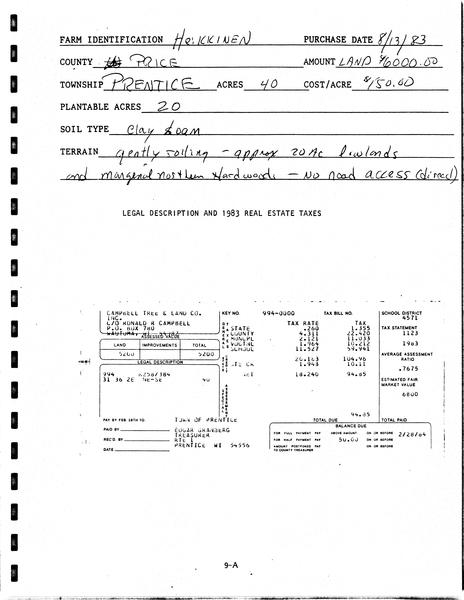 FARM IDENTIFICATION Heikkinen PURCHASE DATE 8/13/83
COUNTY PRICE AMOUNT LAND $6000.00
TOWNSHIP PRENTICE ACRES 40 COST/ACRE $150.00
PLANTABLE ACRES 20
SOIL TYPE Clay Loam
TERRAIN gently rolling - approx 20 Ac lowlands
and marginal northern Hardwoods - No road access (direct)
LEGAL DESCRIPTION AND 1983 REAL ESTATE TAXES
CAMPBELL TREE & LAND CO. INC.
C/O RONALD R CAMPBELL
P.O. BOX 780
WAUTOMA,
ASSESSED VALUE
LAND IMPROVEMENTS TOTAL
5200 5200
LEGAL DESCRIPTION
994
31 36 2E NE-SE 40
KEY NO. 994-0000 TAX BILL NO.
TAX RATE TAX
STATE .260 1.355
COUNTY 4.311 22.420
2.121 11.033
1.964 10.212
SCHOOL 11.527 59.941
20.183 104.96
1.943 10.11
NET 18.240 94.85
SCHOOL DISTRICT
4571
TAX STATEMENT
1123
1983
AVERAGE ASSESSMENT RATIO
.7675
ESTIMATED FAIR MARKET VALUE
6800
94.85
PAY BY FEB 28TH TO: TOWN OF PRENTICE
PAID BY EDGAR GRANBERG
TREASURER
REC'D. BY RTE 1
PRENTICE WI 54556
DATE
TOTAL DUE TOTAL PAID
BALANCE DUE
FOR FULL PAYMENT PAY ABOVE AMOUNT ON OR BEFORE 2/28/84
FOR HALF PAYMENT PAY 50.00 ON OR BEFORE
AMOUNT POSTPONED PAY TO COUNTY TREASURER ON OR BEFORE
9-A